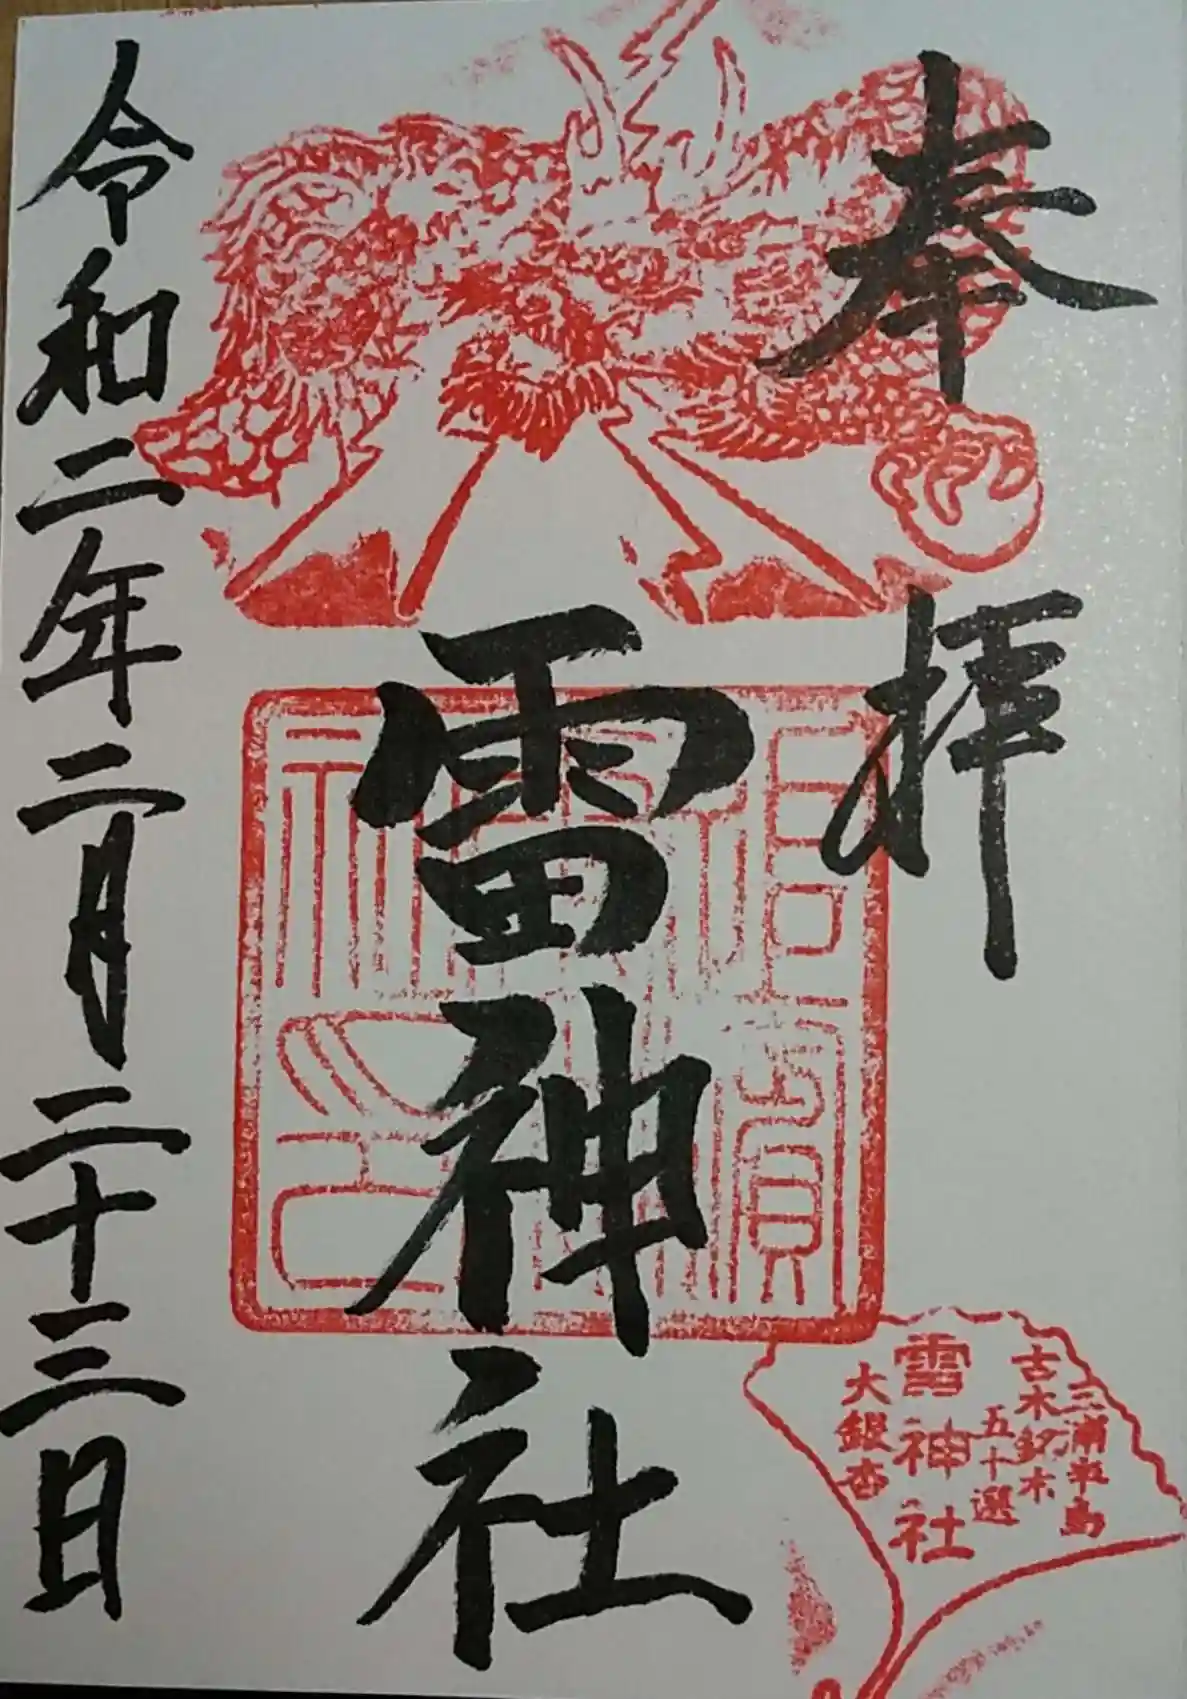 奉拝
雷神社
令和二年二月二十三日
三浦半島
古木銘木
五十選
雷神社
大銀杏